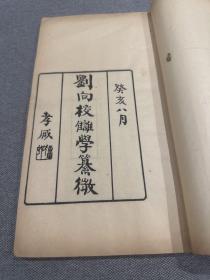 癸亥八月
劉向校讎學纂微
孝㢠